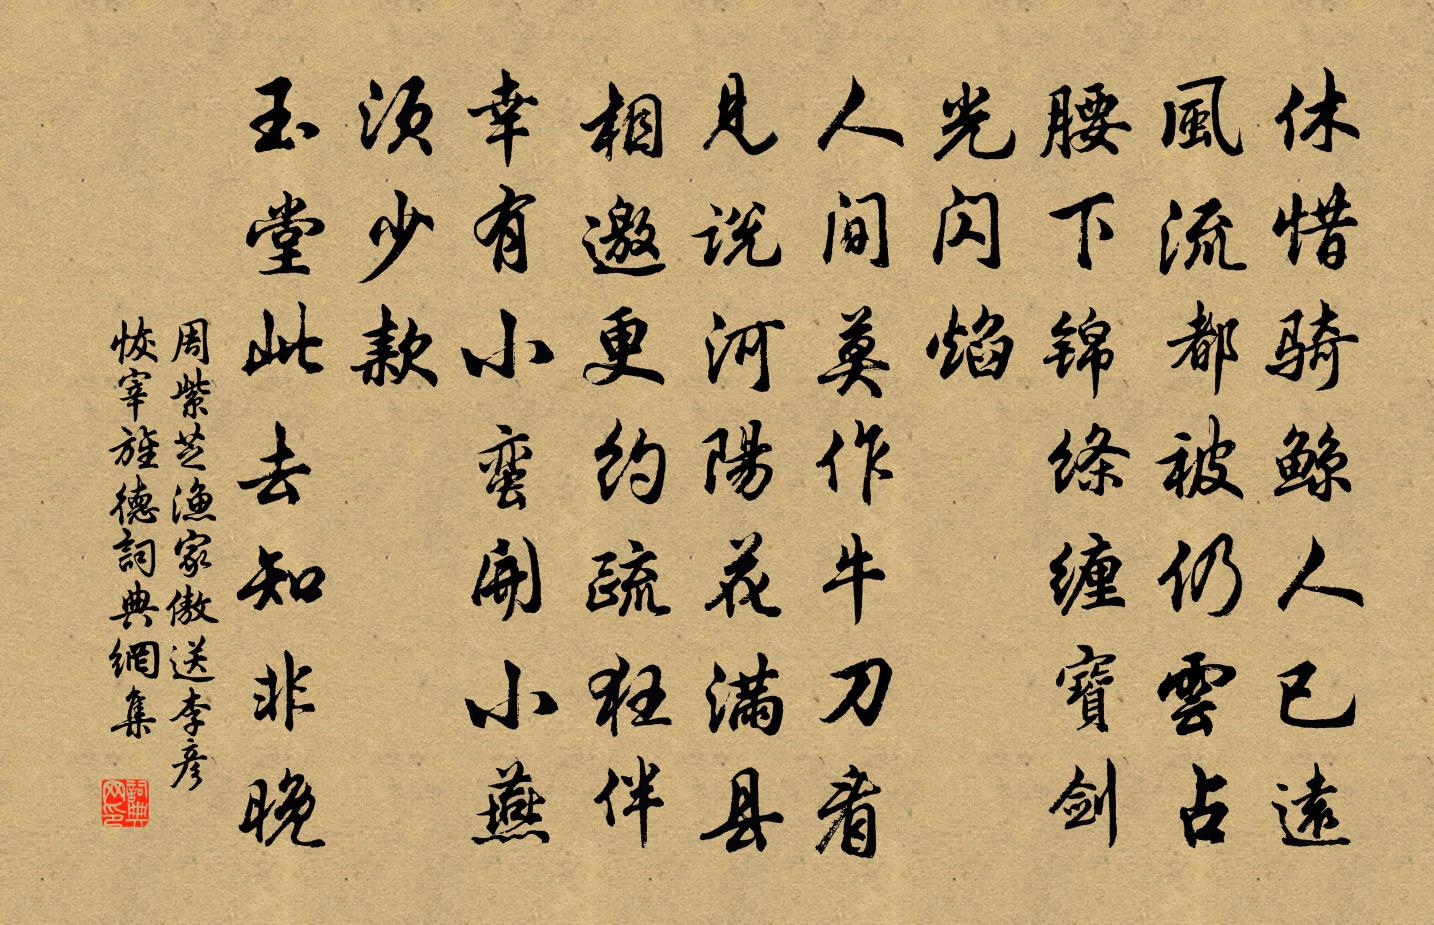 休惜騎鲸人已遠
風流都被仍雲占
腰下锦绦缠寶剑
光闪焰
人间莫作牛刀看
見说河陽花满县
相邀更约疏狂伴
幸有小蛮開小燕
须少款
玉堂此去知非晚
周紫芝漁家傲送李彦
恢宰旌德詞典網集
詞典网印